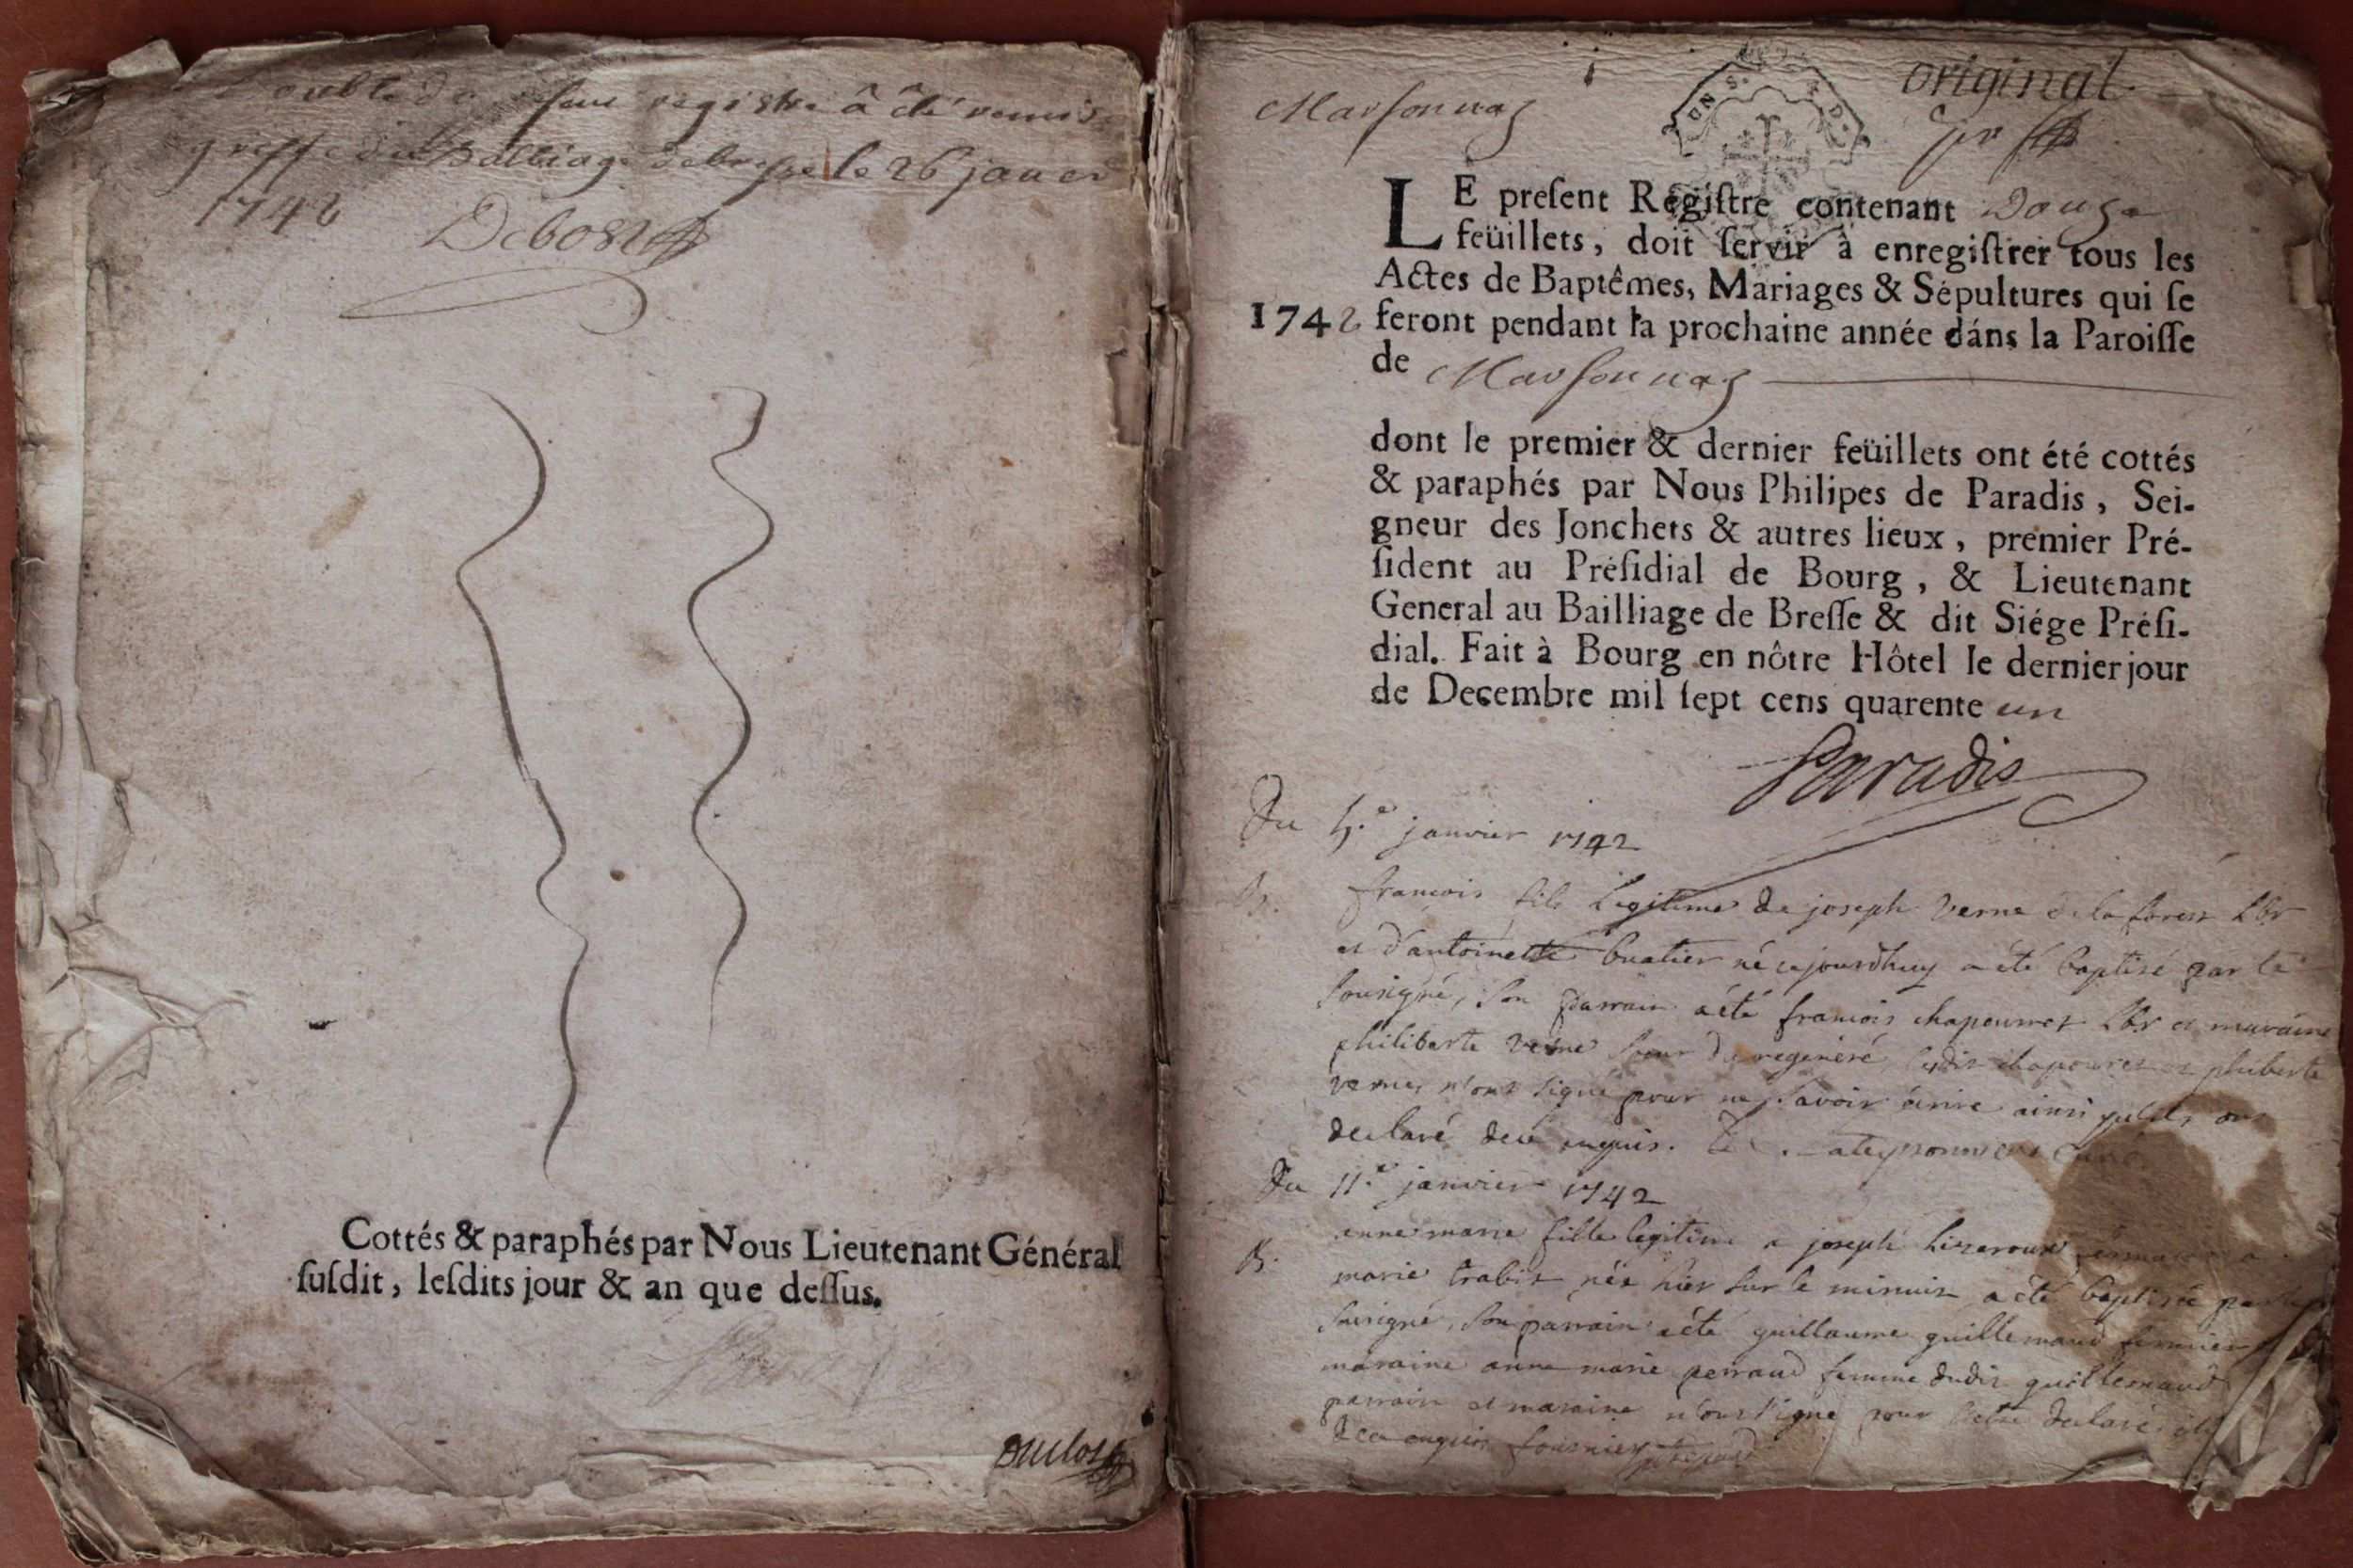 double du present registre a été remis
greffe du Balliage de bresse le 26 janer
1742
Debost
Cottés & paraphés par Nous Lieutenant Général
ſuſdit, leſdits jour & an que deſſus.
Marsonnaz
original
LE preſent Regiſtre contenant Douze
feüillets, doit ſervir à enregiſtrer tous les
Actes de Baptêmes, Mariages & Sépultures qui ſe
1742 feront pendant la prochaine année dans la Paroiſſe
de Marsonnaz
dont le premier & dernier feüillets ont été cottés
& paraphés par Nous Philipes de Paradis, Sei-
gneur des Jonchets & autres lieux, premier Pré-
ſident au Préſidial de Bourg, & Lieutenant
General au Bailliage de Breſſe & dit Siége Préſi-
dial. Fait à Bourg en nôtre Hôtel le dernier jour
de Decembre mil ſept cens quarente un
Paradis
Du janvier 1742
B. francois fils legitime de joseph Verne de la forest lbr
et d'antoinette buatier né cejourdhuy a été baptisé par le
sousigné, son parrain a été francois chapourret lbr et maraine
philiberte verne regeneré, philiberte
verne n'ont signé pour ne savoir écrire ainsi quils ont
declaré de ce enquis.
Du 11e janvier 1742
B. anne marie fille legitime a joseph
marie trabit née hier sur le minuit a été baptisée par le
sousigné, son parrain a été guillaume guillemaud
maraine anne marie perraud femme dudit guillemaud
parrain et maraine n'ont signé pour declaré
de ce enquis